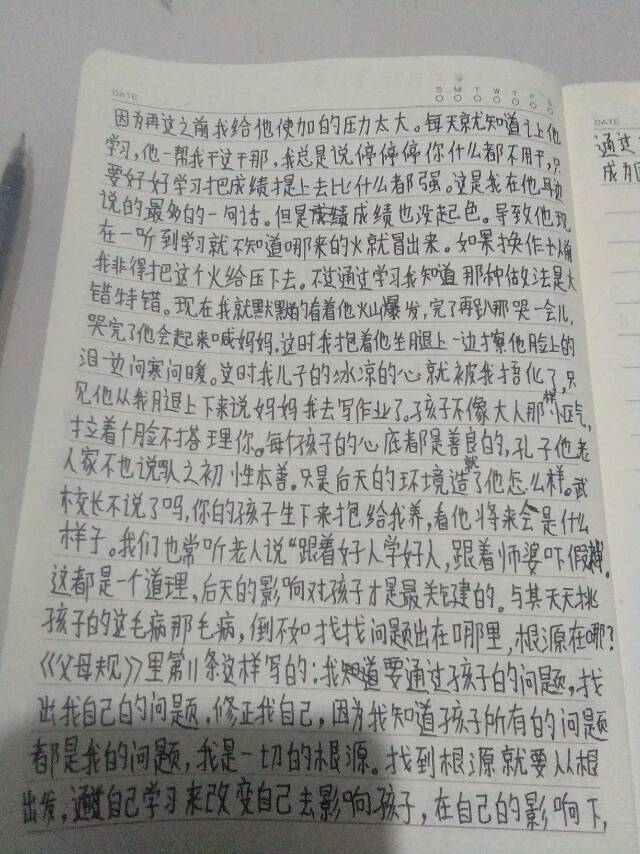 DATE
S M T W T F S
因为再这之前我给他使加的压力太大。每天就知道让他
学习,他一帮我干这干那,我总是说停停停你什么都不用干,只
要好好学习把成绩提上去比什么都强。这是我在他耳边
说的最多的一句话。但是成绩成绩也没起色。导致他现
在一听到学习就不知道哪来的火就冒出来。如果换作以前
我非得把这个火给压下去。不过通过学习我知道那种做法是大
错特错。现在我就默默的看着他火山爆发,完了再趴那哭一会儿,
哭完了他会起来喊妈妈.这时我抱着他坐腿上一边擦他脸上的
泪一边问寒问暖。这时我儿子的冰凉的心就被我捂化了,只
见他从我腿上下来说妈妈我去写作业了。孩子不像大人那样小气,
拉着个脸不搭理你。每个孩子的心底都是善良的,孔子他老
人家不也说人之初性本善。只是后天的环境造就了他怎么样。武
校长不说了吗,你的孩子生下来抱给我养,看他将来会是什么
样子。我们也常听老人说“跟着好人学好人,跟着师婆吓假神.
这都是一个道理,后天的影响对孩子才是最关键的。与其天天挑
孩子的这毛病那毛病,倒不如找找问题出在哪里,根源在哪?
《父母规》里第11条这样写的:我知道要通过孩子的问题,找
出我自己的问题,修正我自己,因为我知道孩子所有的问题
都是我的问题,我是一切的根源。找到根源就要从根
出发,通过自己学习来改变自己去影响孩子,在自己的影响下,
DATE
通过
成为